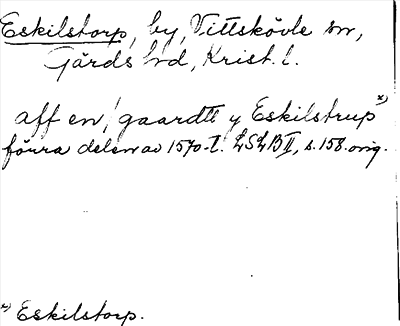 Eskilstorp, by, Vittskövle sn,
Gärds hd, Krist. l.
aff en gaardtt y Eskilstrup x)
förra delen av 1570-t. LSLB II, s. 158. orig.
x) Eskilstorp.